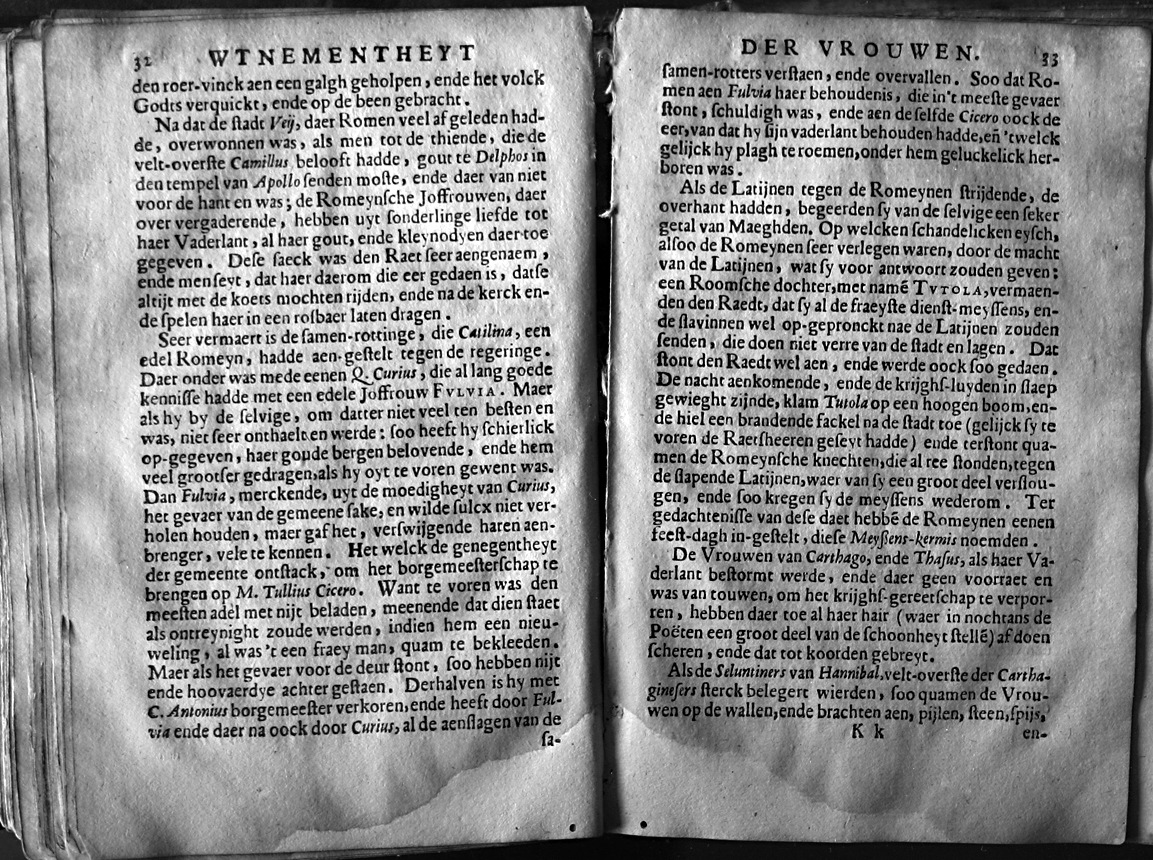 32 WTNEMENTHEYT
den roer-vinck aen een galgh geholpen, ende het volck
Godts verquickt, ende op de been gebracht.
Na dat de stadt Veij, daer Romen veel af geleden had-
de, overwonnen was, als men tot de thiende, die de
velt-overste Camillus belooft hadde, gout te Delphos in
den tempel van Apollo senden moste, ende daer van niet
voor de hant en was; de Romeynsche Joffrouwen, daer
over vergaderende, hebben uyt sonderlinge liefde tot
haer Vaderlant, al haer gout, ende kleynodyen daer-toe
gegeven. Dese saeck was den Raet seer aengenaem,
ende men seyt, dat haer daerom die eer gedaen is, datse
altijt met de koets mochten rijden, ende na de kerck en-
de spelen haer in een rosbaer laten dragen.
Seer vermaert is de samen-rottinge, die Catilina, een
edel Romeyn, hadde aen-gestelt tegen de regeringe.
Daer onder was mede eenen Q. Curius, die al lang goede
kennisse hadde met een edele Joffrouw FVLVIA. Maer
als hy by de selvige, om datter niet veel ten besten en
was, niet seer onthaelt en werde: soo heeft hy schierlick
op-gegeven, haer goude bergen belovende, ende hem
veel grootser gedragen, als hy oyt te voren gewent was.
Dan Fulvia, merckende, uyt de moedigheyt van Curius,
het gevaer van de gemeene sake, en wilde sulcx niet ver-
holen houden, maer gaf het, verswijgende haren aen-
brenger, vele te kennen. Het welck de genegentheyt
der gemeente ontstack, om het borgemeesterschap te
brengen op M. Tullius Cicero. Want te voren was den
meesten adel met nijt beladen, meenende dat dien staet
als ontreynight zoude werden, indien hem een nieu-
weling, al was 't een fraey man, quam te bekleeden.
Maer als het gevaer voor de deur stont, soo hebben nijt
ende hoovaerdye achter gestaen. Derhalven is hy met
C. Antonius borgemeester verkoren, ende heeft door Ful-
via ende daer na oock door Curius, al de aenslagen van de
sa-
DER VROUWEN. 33
samen-rotters verstaen, ende overvallen. Soo dat Ro-
men aen Fulvia haer behoudenis, die in't meeste gevaer
stont, schuldigh was, ende aen de selfde Cicero oock de
eer, van dat hy sijn vaderlant behouden hadde, eñ 'twelck
gelijck hy plagh te roemen, onder hem geluckelick her-
boren was.
Als de Latijnen tegen de Romeynen strijdende, de
overhant hadden, begeerden sy van de selvige een seker
getal van Maeghden. Op welcken schandelicken eysch,
alsoo de Romeynen seer verlegen waren, door de macht
van de Latijnen, wat sy voor antwoort zouden geven:
een Roomsche dochter, met namē TVTOLA, vermaen-
den den Raedt, dat sy al de fraeyste dienst-meyssens, en-
de slavinnen wel op-gepronckt nae de Latijnen zouden
senden, die doen niet verre van de stadt en lagen. Dat
stont den Raedt wel aen, ende werde oock soo gedaen.
De nacht aenkomende, ende de krijghs-luyden in slaep
gewieght zijnde, klam Tutola op een hoogen boom, en-
de hiel een brandende fackel na de stadt toe (gelijck sy te
voren de Raetsheeren geseyt hadde) ende terstont qua-
men de Romeynsche knechten, die al ree stonden, tegen
de slapende Latijnen, waer van sy een groot deel verslou-
gen, ende soo kregen sy de meyssens wederom. Ter
gedachtenisse van dese daet hebbē de Romeynen eenen
feest-dagh in-gestelt, diese Meyssens-kermis noemden.
De Vrouwen van Carthago, ende Thasus, als haer Va-
derlant bestormt werde, ende daer geen voorraet en
was van touwen, om het krijghs-gereetschap te verpor-
ren, hebben daer toe al haer hair (waer in nochtans de
Poëten een groot deel van de schoonheyt stellē) af doen
scheren, ende dat tot koorden gebreyt.
Als de Seluntiners van Hannibal, velt-overste der Cartha-
ginesers sterck belegert wierden, soo quamen de Vrou-
wen op de wallen, ende brachten aen, pijlen, steen, spijs,
K k en-